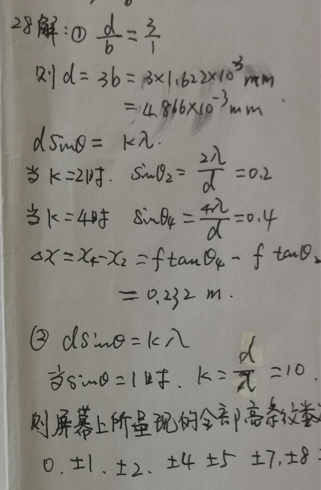 28解:① d/b = 3/1
则 d = 3b = 3×1.622×10⁻³mm
= 4.866×10⁻³mm.
dsinθ = kλ.
当k=2时. sinθ₂ = 2λ/d = 0.2
当k=4时 sinθ₄ = 4λ/d = 0.4
△x = x₄-x₂ = f tanθ₄ - f tanθ₂
= 0.232 m.
② dsinθ = kλ
当sinθ=1时. k = d/λ = 10.
则屏幕上所呈现的全部高条纹数
0. ±1. ±2. ±4 ±5 ±7, ±8